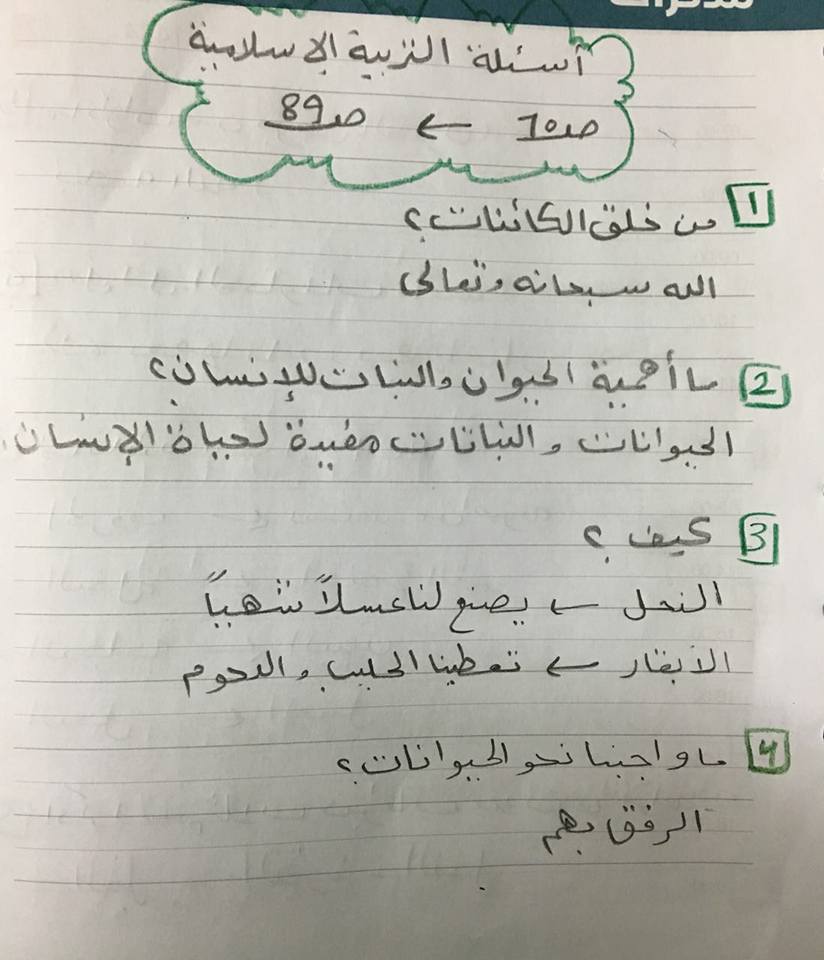 أسئلة التربية الإسلامية
ص70 ← ص89
1 من خلق الكائنات؟
الله سبحانه وتعالى
2 ما أهمية الحيوان والنبات للإنسان؟
الحيوانات والنباتات مفيدة لحياة الإنسان.
3 كيف؟
النحل ← يصنع لنا عسلاً شهياً
الأبقار ← تعطينا الحليب واللحوم
4 ما واجبنا نحو الحيوانات؟
الرفق بهم